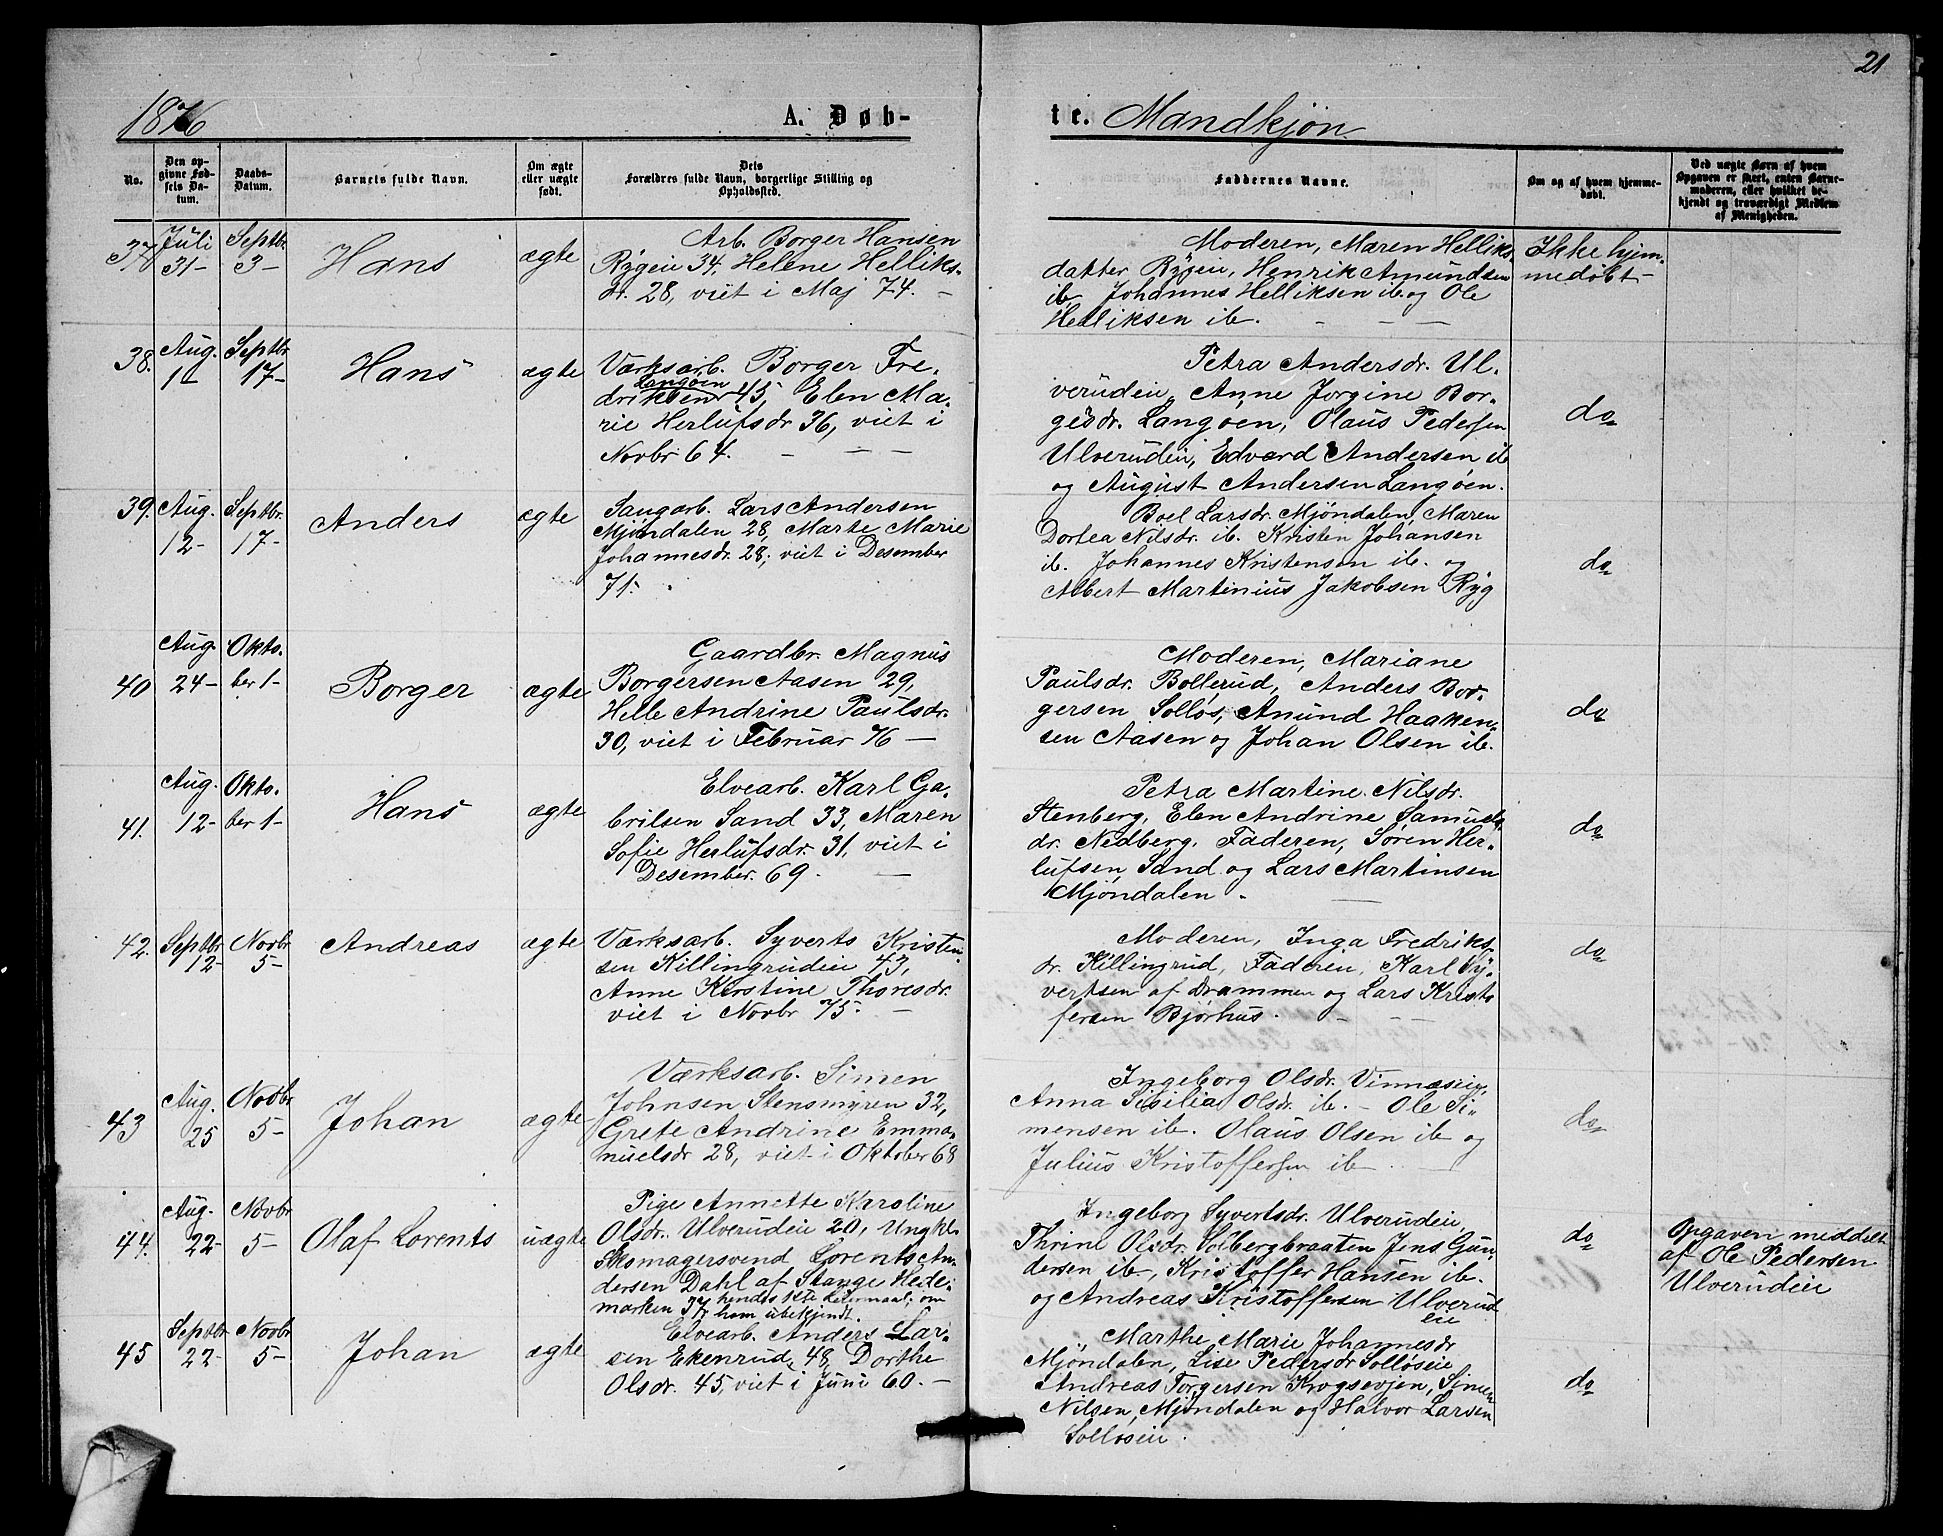 21
1876
A. Døb-
te. Mandkjøn
No.
Den opgivne Fødsels Datum.
Daabs-Datum.
Barnets fulde Navn.
Om ægte eller uægte født.
Dets Forældres fulde Navn, borgerlige Stilling og Opholdssted.
Faddernes Navne.
Om og af hvem hjemmedøbt.
Ved uægte Børn af hvem Opgaven er skeet, enten Barnemoderen, eller hvilket bekjendt og troværdigt Medlem af Menigheden.
37 Juli 31- Septbr. 3- Hans ægte
Arb. Borger Hansen
Rygeie 34, Helene Helliks-
dr. 28, viet i Maj 74. -
Moderen, Maren Helliks
datter Rygeie, Henrik Amundsen
ib, Johannes Helliksen ib. og Ole
Helliksen ib. - - -
Ikke hjem-
medøbt-
38. Aug. 1- Septbr 17- Hans ægte
Værksarb. Borger Fre-
Langøen
driksen 45, Elen Ma-
rie Herlufsdr 36, viet i
Novbr 64. - - -
Petra Andersdr. Ul-
verudeie, Anne Jorgine Bor-
gesdr. Langøen, Olaus Pedersen
Ulverudeie, Edvard Andersen ib
og August Andersen Langøen.
do
39. Aug. 12- Septbr. 17- Anders ægte
Saugarb. Lars Andersen
Mjøndalen 28, Marte Marie
Johannesdr. 28, viet i Desember
71.
Boel Larsdr. Mjøndalen, Maren
Dortea Nilsdr. ib. Kristen Johansen
ib. Johannes Kristensen ib. og
Albert Martinius Jakobsen Ryg
do
40 Aug. 24- Okto-ber 1- Borger ægte
Gaardbr. Magnus
Borgersen Aasen 29,
Helle Andrine Paulsdr.
30, viet i Februar 76 -
Moderen, Mariane
Paulsdr. Bollerud, Anders Bor-
gersen Solløs, Amund Haaken-
sen Aasen og Johan Olsen ib.
do
41. Aug. 12- Okto-ber 1- Hans ægte
Elvearb. Karl Ga-
brilsen Sand 33, Maren
Sofie Herlufsdr. 31, viet i
Desember 69. -
Petra Martine Nilsdr.
Stenberg, Elen Andrine Samuels
dr. Nedberg, Faderen, Søren Her-
lufsen Sand og Lars Martinsen
Mjøndalen. -
do
42. Septbr 12- Novbr 5- Andreas ægte
Værksarb. Syverts Kristen-
sen Killingrudeie 43,
Anne Kirstine Thoresdr.
viet i Novbr 75. -
Moderen, Inga Fredriks-
dr. Killingrud, Faderen, Karl Sy-
vertsen af Drammen og Lars Kristo
fersen Bjørhus. - -
do
43 Aug. 25 Novbr 5- Johan ægte
Værksarb. Simen
Johnsen Stensmyren 32,
Grete Andrine Emma-
nuelsdr 28, viet i Oktober 68
Ingeborg Olsdr. Vinnæseie,
Anna Sisilia Olsdr. ib. - Ole Si-
mensen ib. Olaus Olsen ib og
Julius Kristoffersen ib. -
do
44. Aug. 22- Novbr 5- Olaf Lorents uægte
Pige Annette Karoline
Olsdr. Ulverudeie 20, Ungkl.
Skomagersvend Lorents An-
dersen Dahl af Stange Hede-
marken 37, hendes 1ste Leiermaal, om
ham ubekjendt.
Ingeborg Syvertsdr. Ulverudeie,
Thrine Olsdr. Solbergbraaten Jens Gun-
dersen ib., Kristoffer Hansen ib.
og Andreas Kristoffersen Ulverud
eie
do
Opgaven meddelt
af Ole Pedersen
Ulverudeie
45 Septbr 22- Novbr 5- Johan ægte
Elvearb. Anders Lar-
sen Ekenrud, 48, Dorthe
Olsdr. 45, viet i Juni 60. -
Marthe Marie Johannesdr
Mjøndalen, Lise Pedersdr Solløseie
Andreas Torgersen Krogsevjen, Simen
Nilsen, Mjøndalen og Halvor Larsen
Solløseie.
do